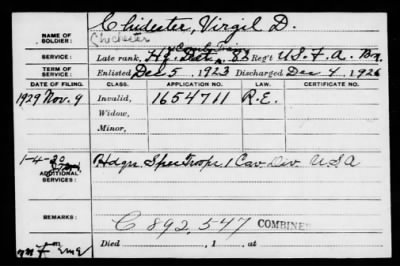 Chidester, Virgil D.
NAME OF SOLDIER:
Chichester
SERVICE:
Late rank, Hq. Det. 82 Reg't U.S.F.A. Bn.
TERM OF SERVICE:
Enlisted Dec 5, 1923 Discharged Dec 4, 1926
DATE OF FILING. CLASS. APPLICATION NO. LAW. CERTIFICATE NO.
1929 Nov. 9 Invalid, 1654711 R.E.
Widow,
Minor,
1-4-30
ADDITIONAL SERVICES:
Hdqrs. Spec Troops, 1 Cav. Div. U.S.A
C 892,547 COMBINE
Died , 1 , at